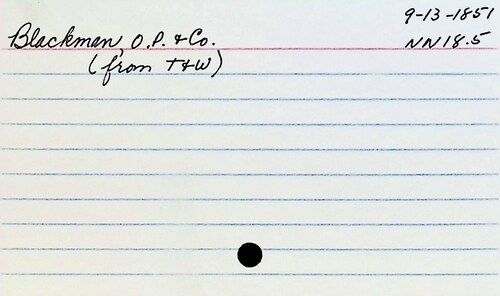 9-13-1851
Blackman, O.P. & Co. NN18.5
(from T&W)